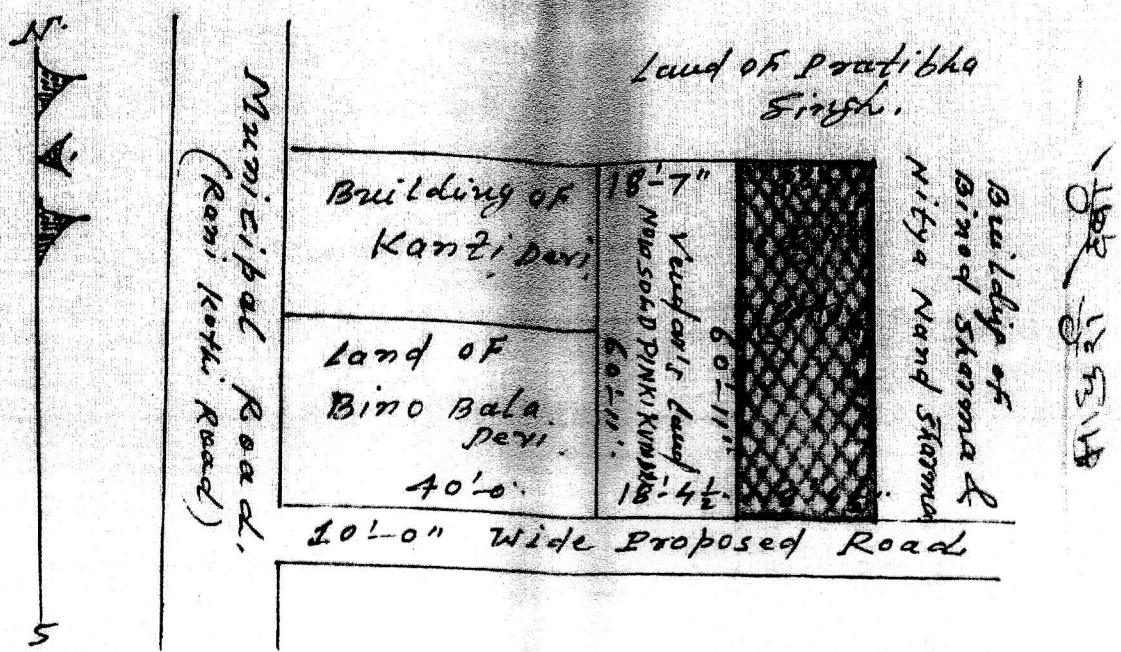 N.
S
Municipal Road.
(Rani Kothi Road)
Land of Pratibha
Singh.
Building of
Kanti Devi
Land of
Bino Bala
Devi
40'-0"
18'-7"
Vendor's Land
Now SOLD PINKI KUMARI
60'-11"
60'-11"
18'-4½"
Building of
Binod Sharma &
Nitya Nand Sharma
10'-0" Wide Proposed Road